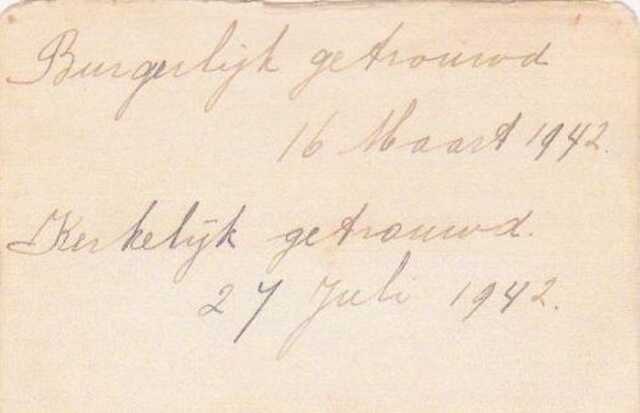 Burgerlijk getrouwd
16 Maart 1942.
Kerkelijk getrouwd.
27 Juli 1942.